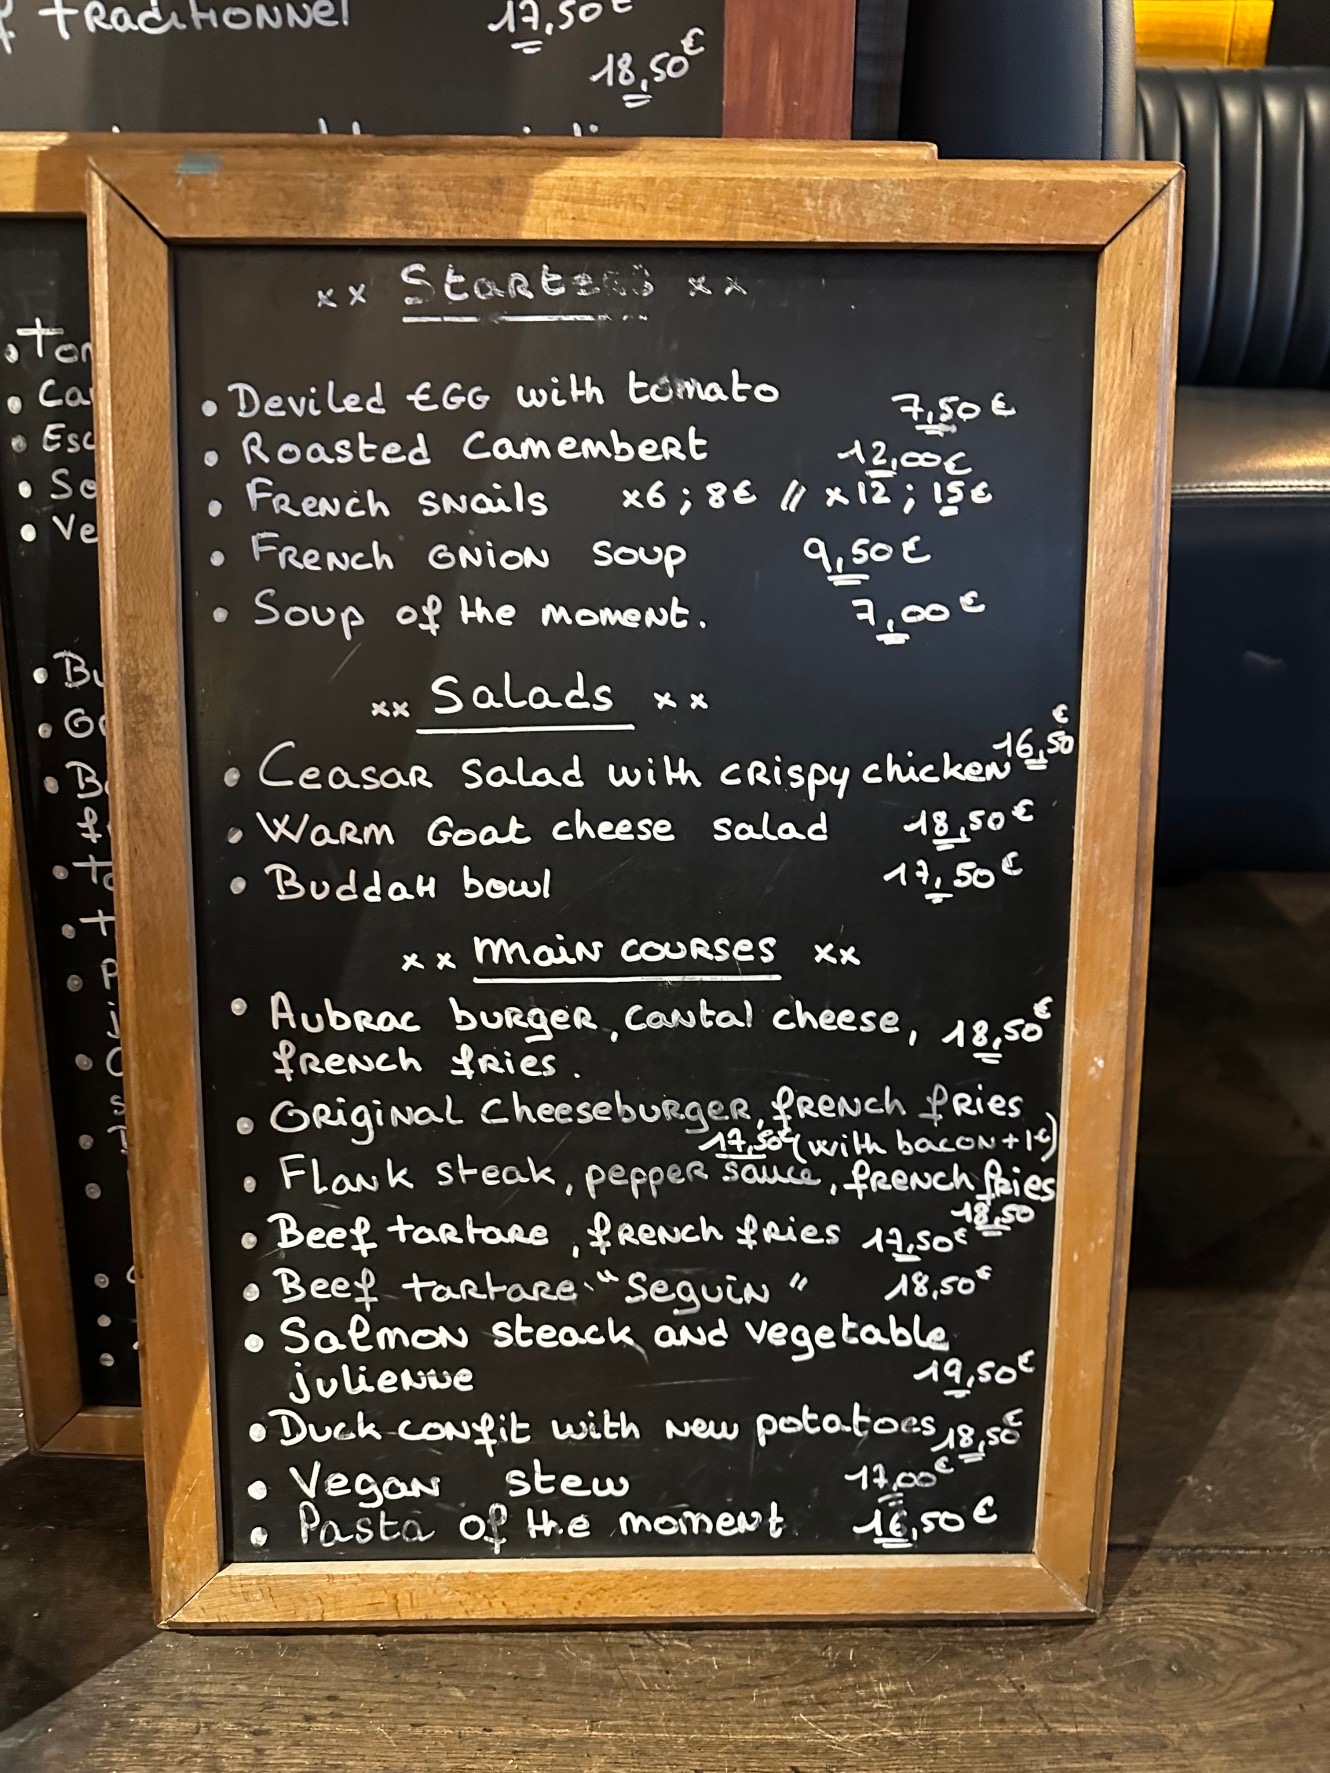 traditionnel 17,50€
18,50€
xx Starters xx
• Deviled EGG with tomato 7,50€
• Roasted Camembert 12,00€
• French snails x6 ; 8€ // x12 ; 15€
• French onion soup 9,50€
• Soup of the moment. 7,00€
xx Salads xx
• Ceasar salad with crispy chicken 16,50€
• Warm Goat cheese salad 18,50€
• Buddah bowl 17,50€
xx Main courses xx
• Aubrac burger, cantal cheese, 18,50€
french fries.
• Original cheeseburger, french fries
17,50€ (with bacon +1€)
• Flank steak, pepper sauce, french fries
18,50
• Beef tartare, french fries 17,50€
• Beef tartare "Seguin" 18,50€
• Salmon steack and vegetable
julienne 19,50€
• Duck confit with new potatoes 18,50€
• Vegan stew 17,00€
• Pasta of the moment 16,50€